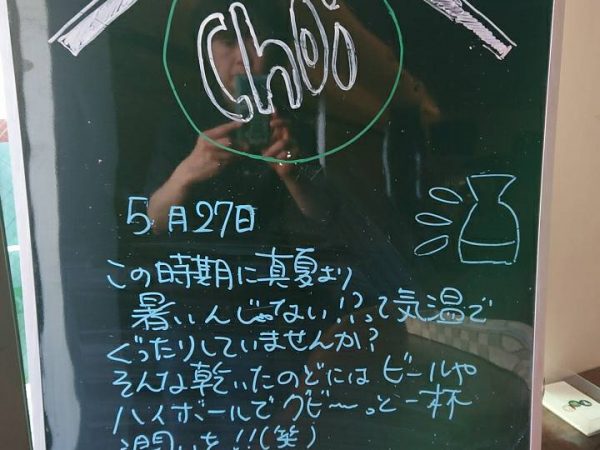 Choi
5月27日
この時期に真夏より
暑いんじゃない!?って気温で
ぐったりしていませんか?
そんな乾いたのどには ビールや
ハイボールで グビ〜っと一杯
潤いを!!(笑)